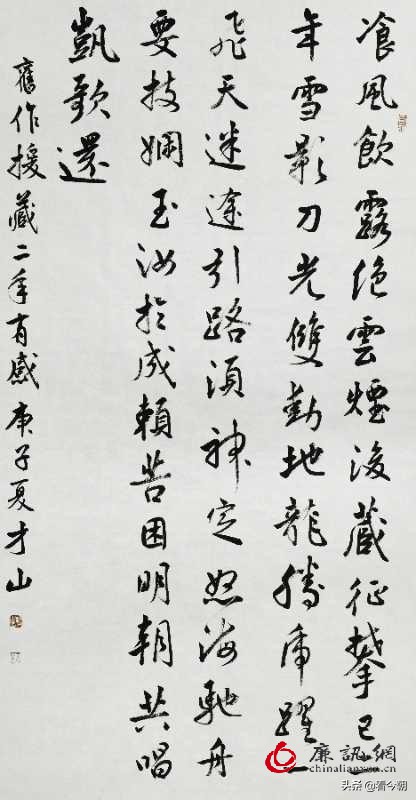 飡風飲露绝雲煙援藏征攀已二
年雪影刀光雙動地龍騰虎躍一
飛天迷途引路須神定怒海馳舟
要技嫻玉汝於成賴苦困明朝共唱
凱歌還
舊作援藏二年有感庚子夏才山
廉訊網
chinalianxun.com
头条 @看今朝